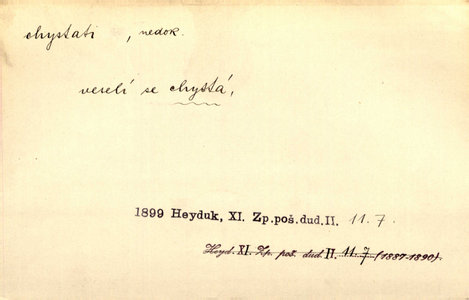 chystati , nedok.
veselí se chystá,
1899 Heyduk, XI. Zp.poš.dud.II. 11.7.
Heyd. XI. Zp. poš. dud. II. 11.7 (1887-1890).